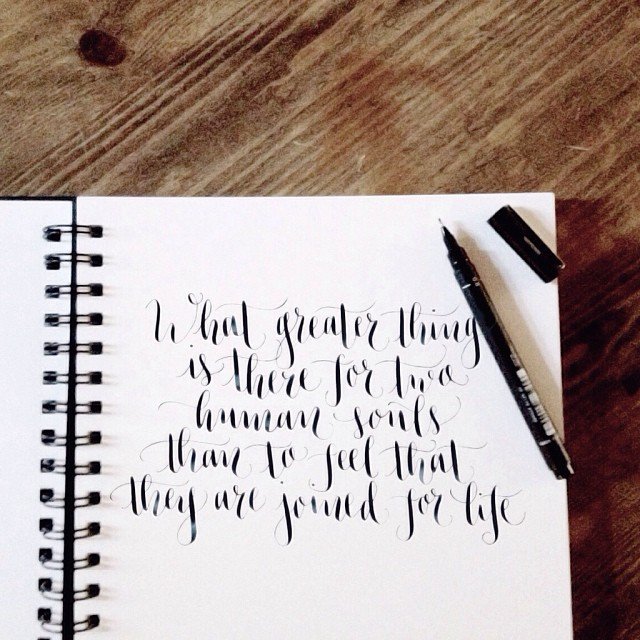 What greater thing
is there for two
human souls
than to feel that
they are joined for life